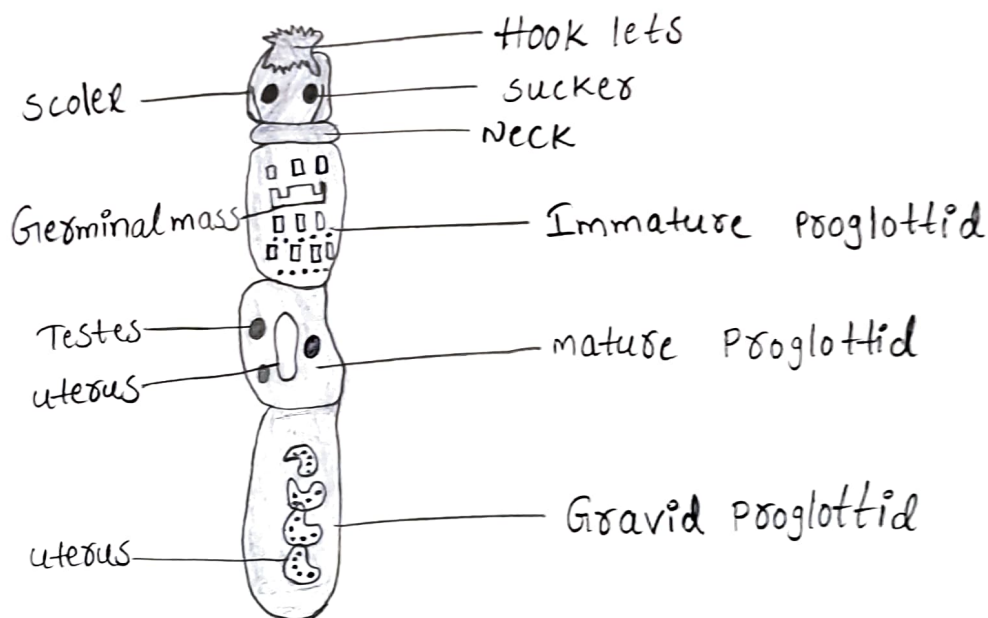 Hook lets
scolex
sucker
Neck
Germinal mass
Immature proglottid
Testes
mature Proglottid
uterus
Gravid proglottid
uterus